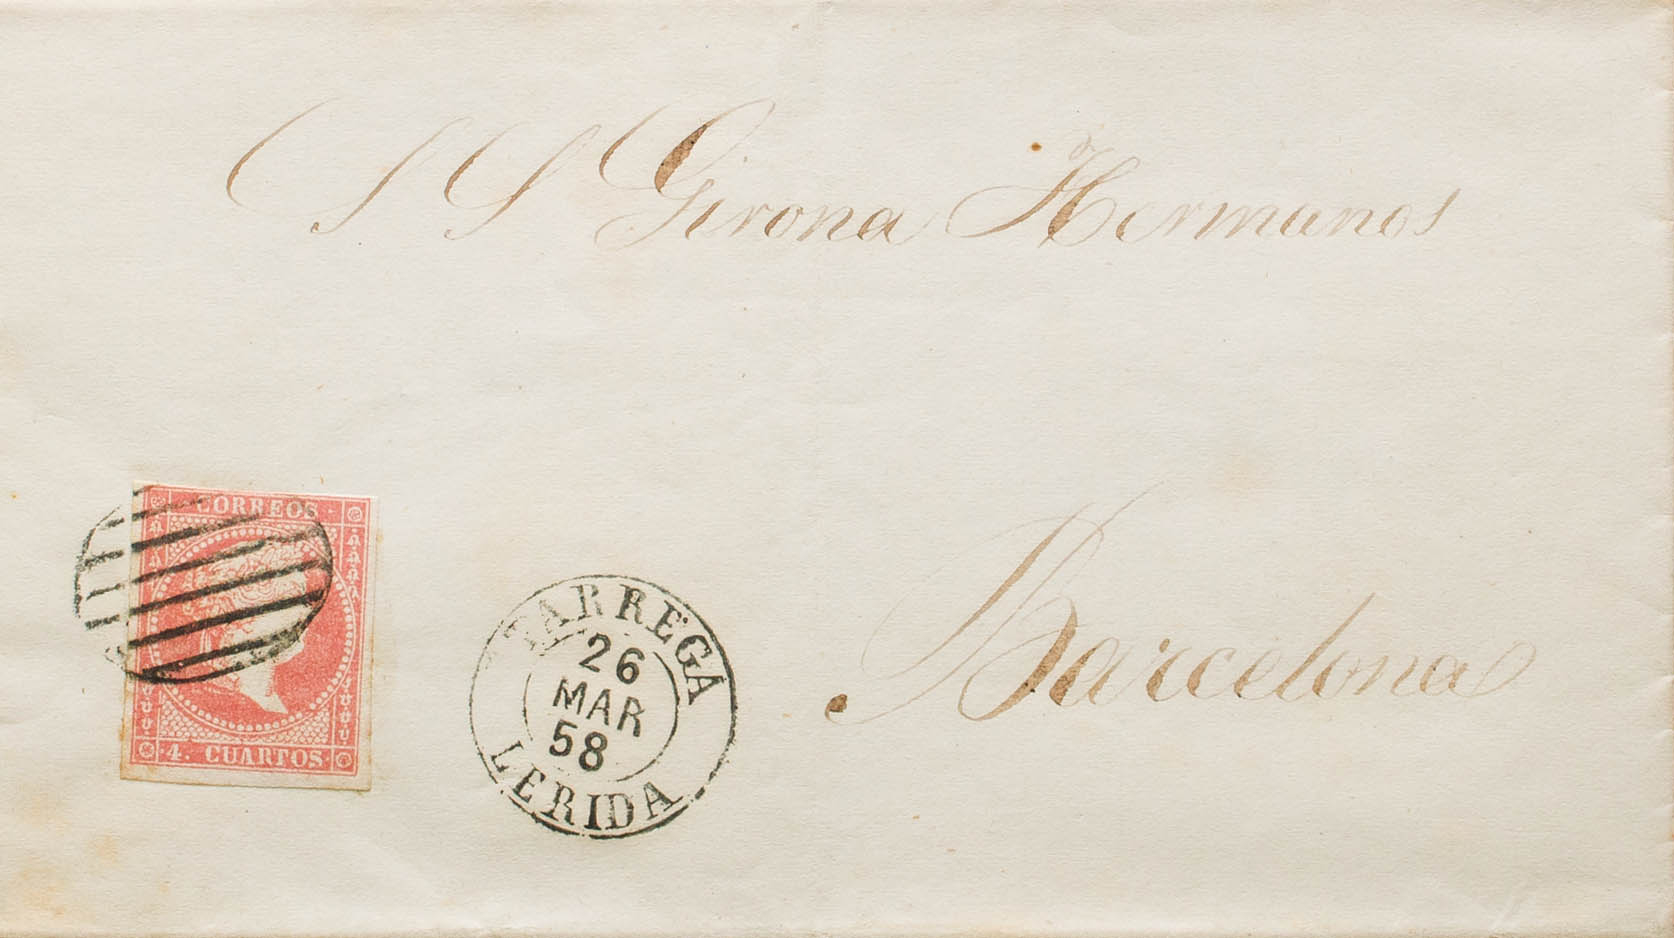 S S Girona Hermanos
Barcelona
CORREOS
4. CUARTOS
TARREGA
26
MAR
58
LERIDA